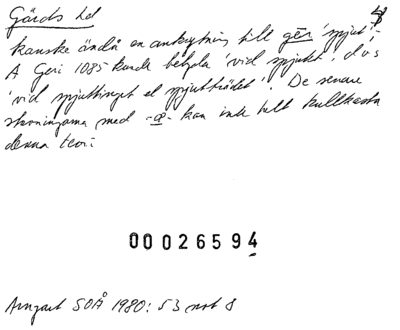 Gärds hd
kanske ändå en anknytning till gēr 'spjut'.
A Geri 1085 kunde betyda 'vid spjutet', dvs
'vid spjuttinget el spjutträdet'. De senare
skrivningarna med -æ- kan inte helt kullkasta
denna teori
00026594
Ainzart SOÅ 1980: 53 not 8